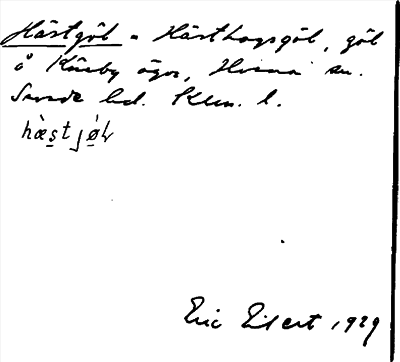 Hästgöl = Hästhagsgöl, göl
å Kårby ägor, Hvena sn.
Sevede hd. Klm. l.
hæ̀stjø̀ɫ
Eric Elgert 1929